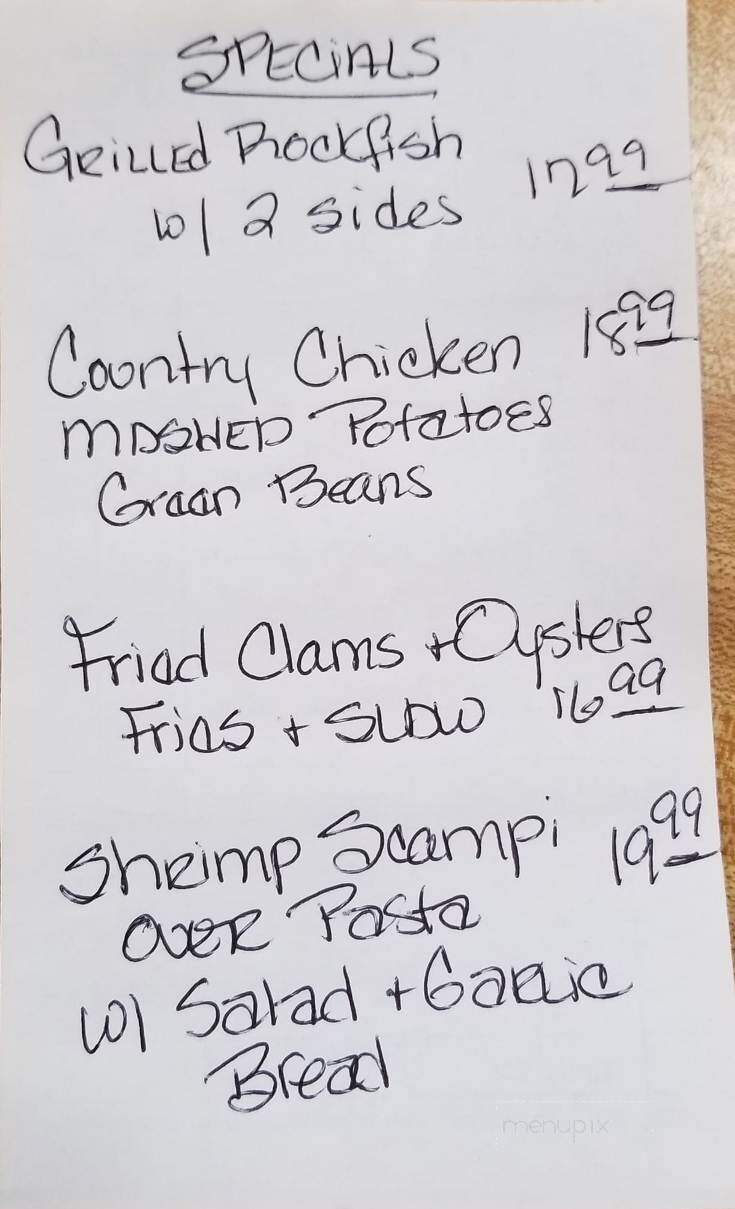 SPECIALS
GRILLED Rockfish
w/ 2 sides 17 99
Country Chicken 18 99
MASHED Potatoes
Green Beans
Fried Clams + Oysters
Fries + SLAW 16 99
Shrimp Scampi 19 99
OVER Pasta
w/ Salad + Garlic
Bread
menupix